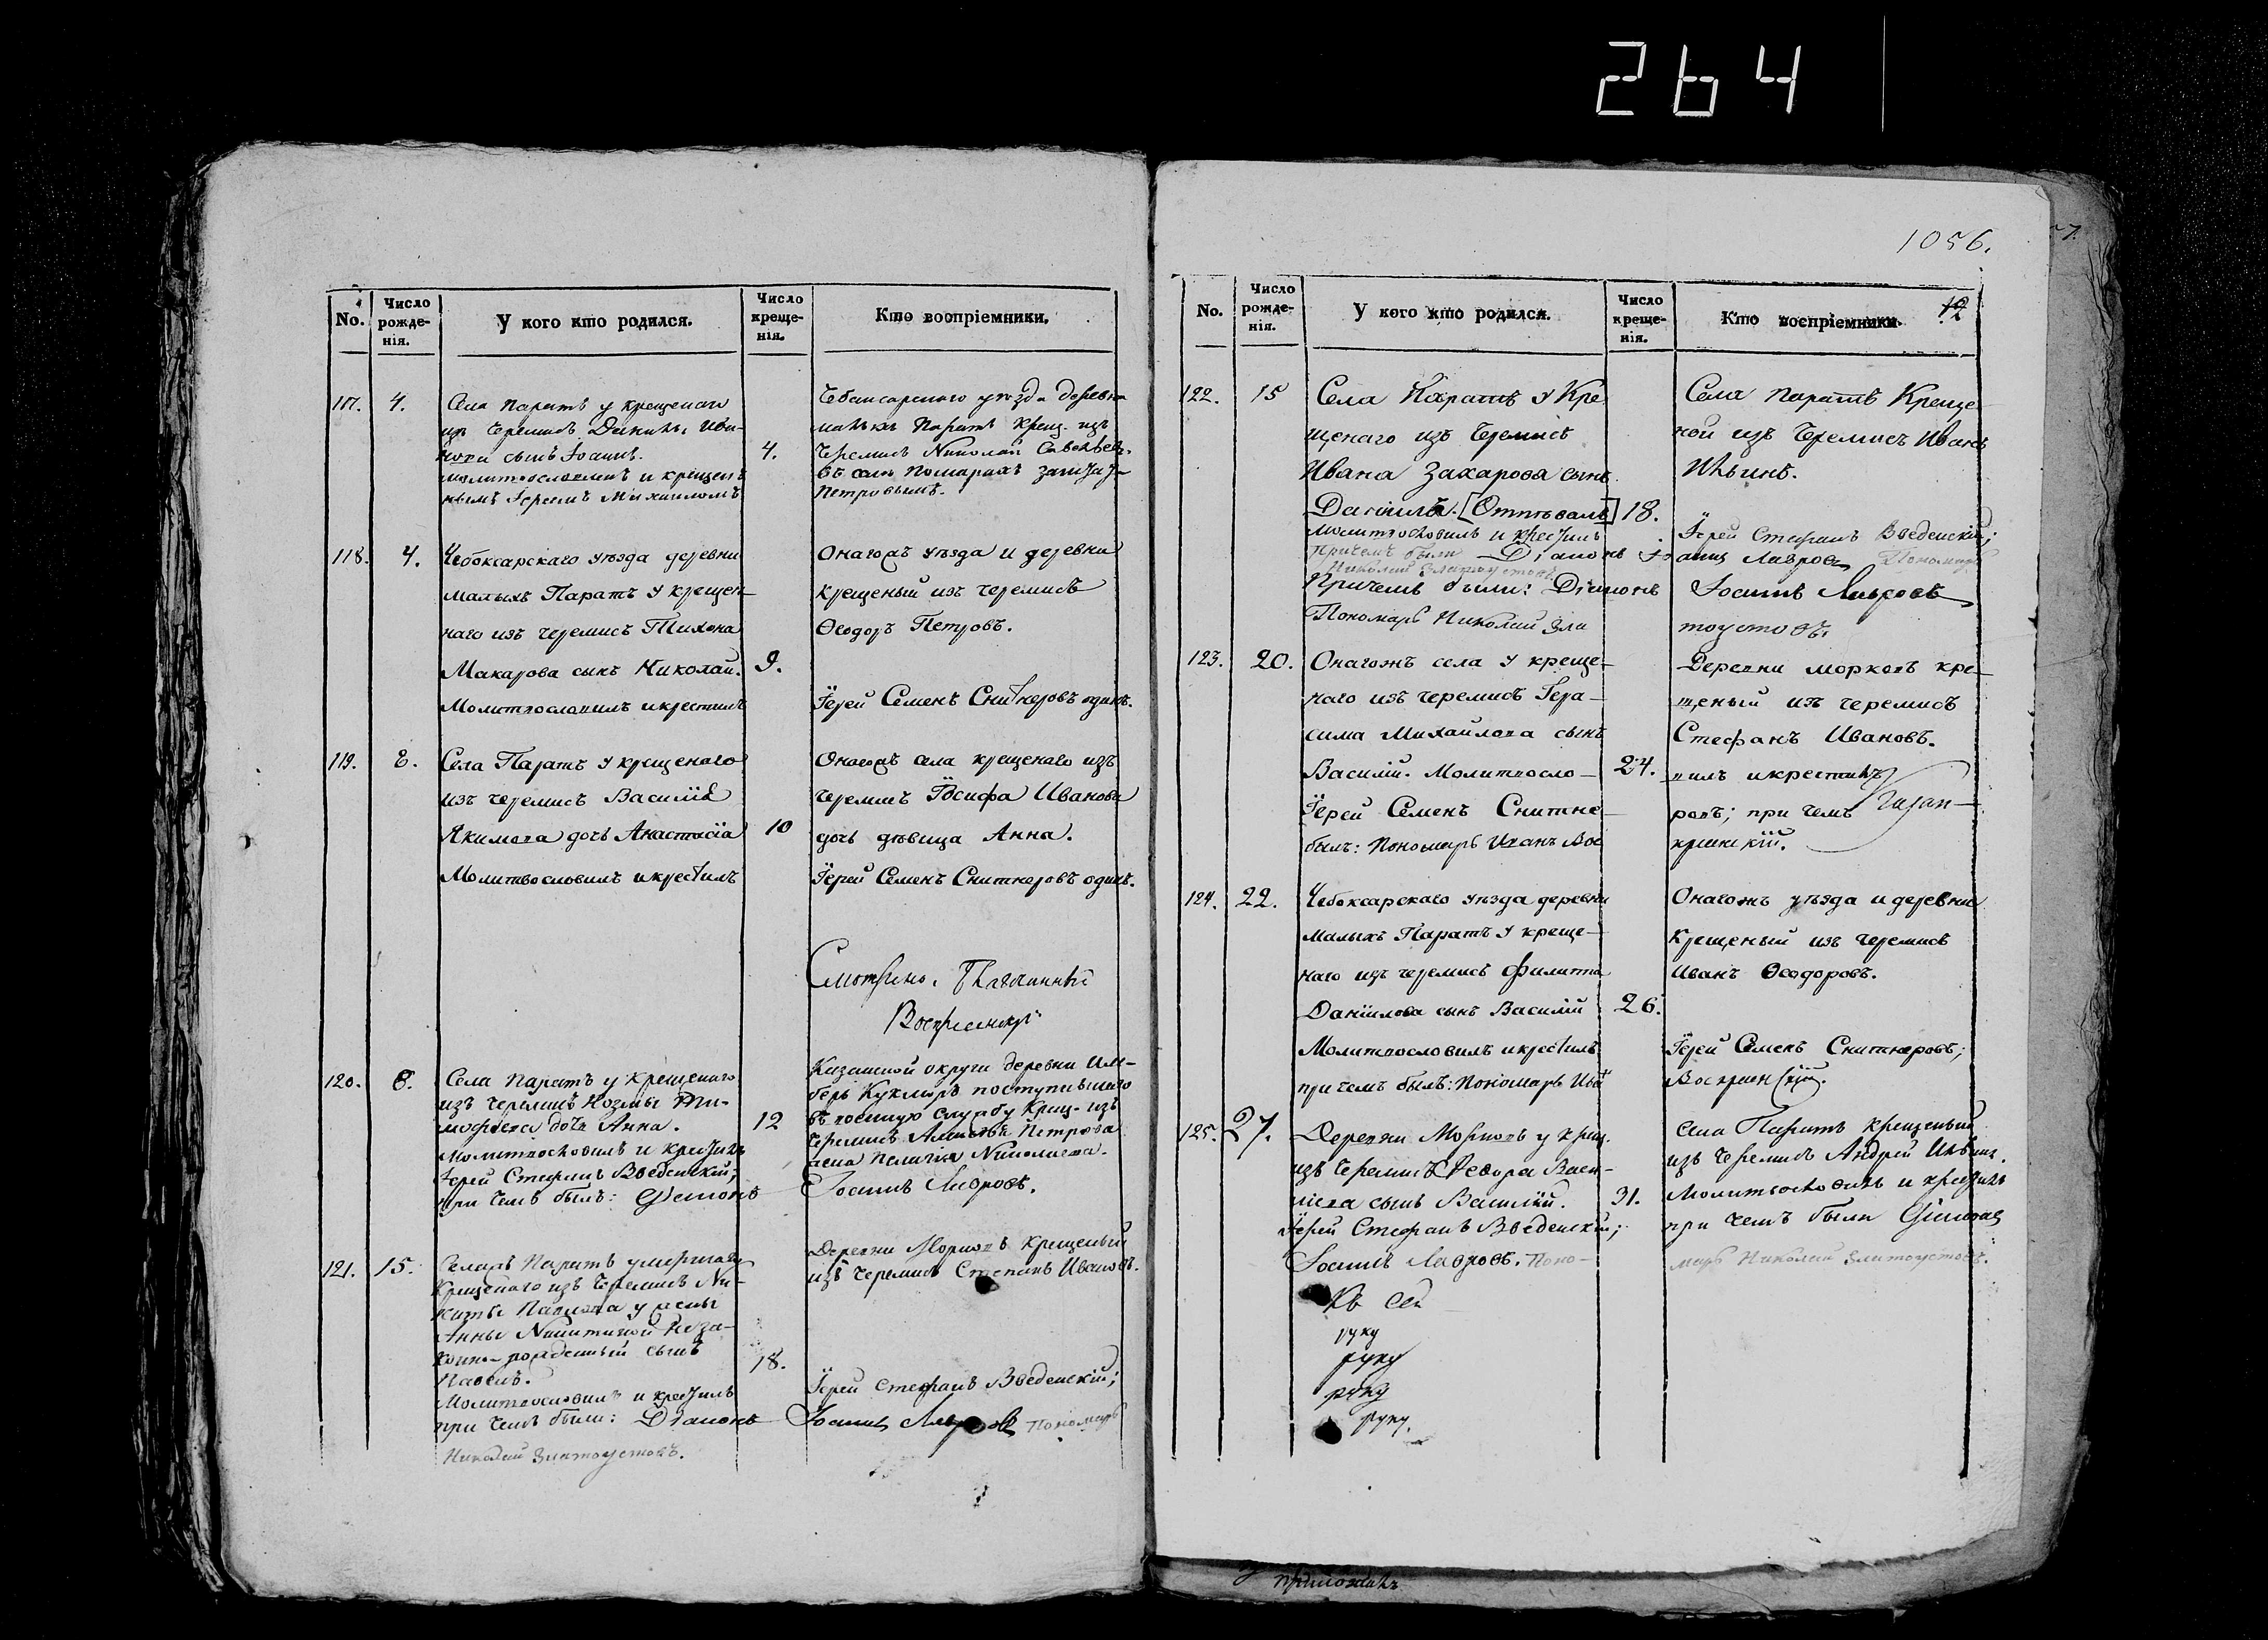 264
1056.
No.
Число рожденія.
У кого кто родился.
Число крещенія.
Кто воспріемники.
117.
4.
Села Паратъ у крещенаго
изъ Черемисъ Данилы Ива-
нова сынъ Іоаннъ.
молитвословленъ и крещенъ
Іереемъ Михаиломъ
4.
Чебоксарскаго уѣзда деревни
малыхъ Паратъ крещ. изъ
Черемисъ Николай Савельевъ.
въ селѣ Помарахъ
Петровымъ.
118.
4.
Чебоксарскаго уѣзда деревни
малыхъ Паратъ у крещен-
наго изъ черемисъ Тихона
Макарова сынъ Николай.
Молитвословилъ и крестилъ
9.
Онагожъ уѣзда и деревни
крещеный изъ черемисъ
Ѳеодоръ Петровъ.
Іерей Семенъ Снитнеровъ одинъ.
119.
8.
Села Паратъ у крещенаго
изъ черемисъ Василія
Якимова дочь Анастасія
Молитвословилъ и крестилъ
10
Онагожъ села крещенаго изъ
черемисъ Іосифа Иванова
дочь дѣвица Анна.
Іерей Семенъ Снитнеровъ одинъ.
Смотрено. Благочинный
120.
8.
Села Паратъ у крещенаго
изъ черемисъ Козмы Ти-
мофеева дочь Анна.
Молитвословилъ и крестилъ
Іерей Стефанъ Введенскій;
при чемъ былъ: Діаконъ
12
Казанской округи деревни
Кукморъ поступившаго
въ военную службу крещ. изъ
черемисъ Петрова
жена Николаева.
Іоаннъ Лавровъ.
121.
15.
Паратъ умершаго
крещенаго изъ черемисъ Ни-
киты Павлова у жены
Анны Никитиной неза-
конно-рожденный сынъ
Павелъ.
Молитвословилъ и крестилъ
при чемъ были: Діаконъ
Николай Златоустовъ.
18.
Деревни Морковъ крещеный
изъ черемисъ Степанъ Ивановъ.
Іерей Стефанъ Введенскій;
Іоаннъ Лавровъ Пономарь
No.
Число рожденія.
У кого кто родился.
Число крещенія.
Кто воспріемники.
12
122.
15
Села Паратъ у Кре
щенаго изъ Черемисъ
Ивана Захарова сынъ
Даніилъ. [Отпѣвалъ]
молитвословилъ и крестилъ
при чемъ были Діаконъ Іо
Николай Златоустовъ.
При чемъ были: Діаконъ
Пономарь Николай Зла
18.
Села Паратъ Креще
ной изъ Черемисъ Иванъ
Ильинъ.
Іерей Стефанъ Введенскій;
аннъ Лавровъ Пономарь
Іоаннъ Лавровъ
тоустовъ.
123.
20.
Онагожъ села у креще-
наго изъ черемисъ Гера-
сима Михайлова сынъ
Василій. Молитвосло-
Іерей Семенъ Снитне-
былъ: Пономарь Иванъ Вос
24.
Деревни Морковъ кре-
щеный изъ черемисъ
Стефанъ Ивановъ.
вилъ и крестилъ
ровъ; при чемъ
кресенскій.
124.
22.
Чебоксарскаго уѣзда деревни
малыхъ Паратъ у креще-
наго изъ черемисъ Филиппа
Даніилова сынъ Василій
Молитвословилъ и крестилъ
при чемъ былъ: Пономарь Ива
26.
Онагожъ уѣзда и деревни
Крещеный изъ черемисъ
Иванъ Ѳеодоровъ.
Іерей Семенъ Снитнеровъ;
Воскресенскій.
125.
27.
Деревни Морковъ у крещ.
изъ черемисъ Ѳедора Васи-
льева сынъ Василій.
Іерей Стефанъ Введенскій;
Іоаннъ Лавровъ. Поно-
31.
Села Паратъ крещеный
изъ черемисъ Андрей Ильинъ.
Молитвословилъ и крестилъ
при чемъ были Діаконъ
марь Николай Златоустовъ.
Къ сей
руку
руку
руку
руку.
приложилъ